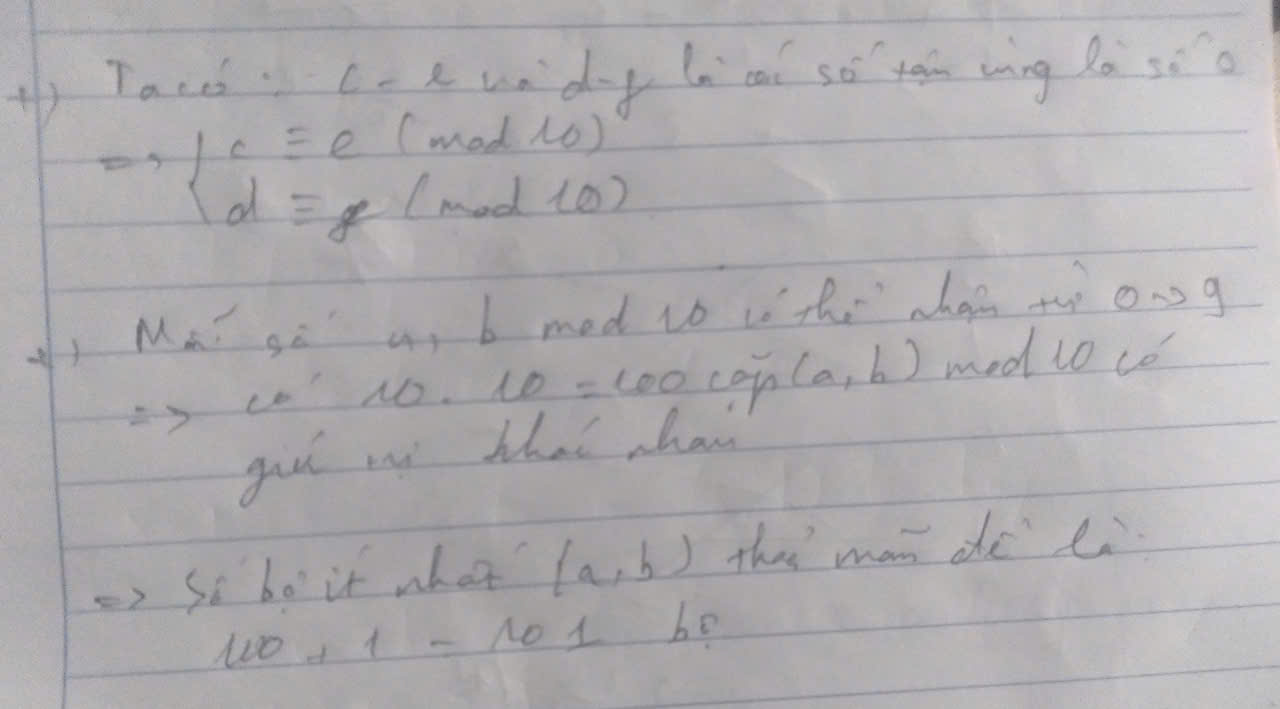 +) Ta có : c - e và d-g là các số tận cùng là số 0
=> { c ≡ e (mod 10)
d ≡ g (mod 10)
+) Mỗi số a, b mod 10 có thể nhận từ 0 -> 9
=> có 10 . 10 = 100 cặp (a, b) mod 10 có
giá trị khác nhau
=> Số bộ ít nhất (a, b) thoả mãn đề là:
100 + 1 = 101 bộ